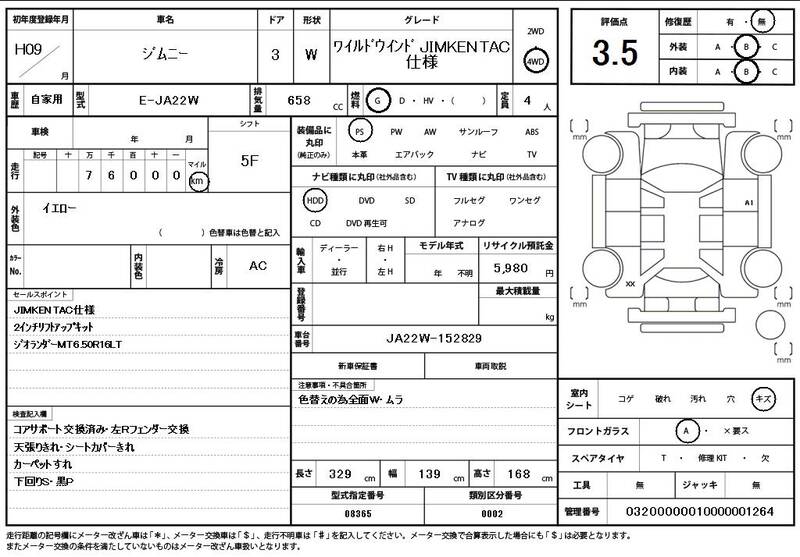 初年度登録年月 車名 ドア 形状 グレード 2WD 4WD
H09 月 ジムニー 3 W ワイルドウインド JIMKEN TAC
仕様
評価点 3.5 修復歴 有 ・ 無
外装 A ・ B ・ C
内装 A ・ B ・ C
車歴 自家用 型式 E-JA22W 排気量 658 CC 燃料 G ・ D ・ HV ・ ( ) 定員 4 人
車検 年 月 シフト 5F
走行 記号 十 万 千 百 十 一 マイル km
7 6 0 0 0
装備品に丸印(純正のみ) PS PW AW サンルーフ ABS
本革 エアバック ナビ TV
ナビ種類に丸印(社外品含む) TV種類に丸印(社外品含む)
HDD DVD SD フルセグ ワンセグ
CD DVD再生可 アナログ
外装色 イエロー
( )色替車は色替と記入
カラーNo. 内装色 冷房 AC
輸入車 ディーラー ・ 並行 右H ・ 左H モデル年式 年 不明 リサイクル預託金 5,980 円
登録番号 最大積載量 kg
車台番号 JA22W-152829
新車保証書 車両取説
セールスポイント
JIMKEN TAC仕様
2インチリフトアップキット
ジオランダーMT6.50R16LT
注意事項・不具合箇所
色替えの為全面W・ムラ
検査記入欄
コアサポート交換済み・左Rフェンダー交換
天張りきれ・シートカバーきれ
カーペットすれ
下回りS・黒P
長さ 329 cm 幅 139 cm 高さ 168 cm
型式指定番号 類別区分番号
08365 0002
[ ] mm [ ] mm
A1
XX
[ ] mm [ ] mm
[ ] mm
室内シート コゲ 破れ 汚れ 穴 キズ
フロントガラス A ・ ×要ス
スペアタイヤ T ・ 修理KIT ・ 欠
工具 無 ジャッキ 無
管理番号 03200000010000001264
走行距離の記号欄にメーター改ざん車は「*」、メーター交換車は「$」、走行不明車は「#」を記入してください。メーター交換で合算表示した場合にも「$」は必要となります。
またメーター交換の条件を満たしていないものはメーター改ざん車扱いとなります。